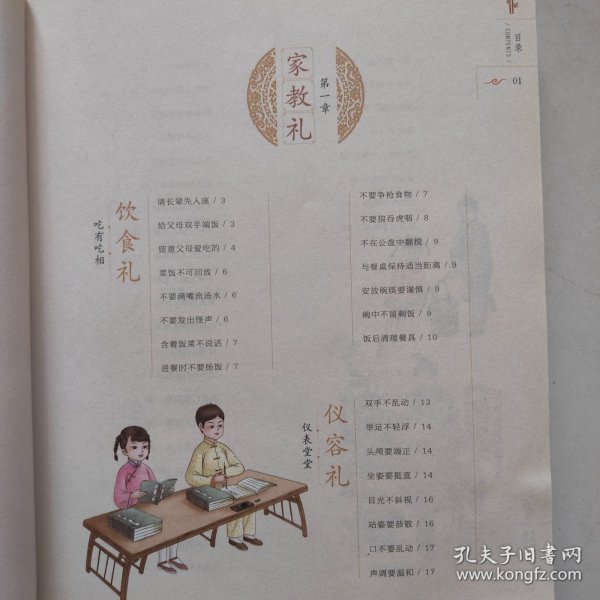 目录
/ CONTENTS /
01
第一章
家教礼
饮食礼
吃有吃相
请长辈先入座 / 3
给父母双手端饭 / 3
留意父母爱吃的 / 4
菜饭不可回放 / 6
不要满嘴流汤水 / 6
不要发出怪声 / 6
含着饭菜不说话 / 7
进餐时不要扬饭 / 7
不要争抢食物 / 7
不要狼吞虎咽 / 8
不在公盘中翻搅 / 9
与餐桌保持适当距离 / 9
安放碗筷要谨慎 / 9
碗中不留剩饭 / 9
饭后清理餐具 / 10
仪容礼
仪表堂堂
双手不乱动 / 13
举足不轻浮 / 14
头颅要端正 / 14
坐姿要挺直 / 14
目光不斜视 / 16
站姿要恭敬 / 16
口不要乱动 / 17
声调要温和 / 17
孔夫子旧书网
www.kongfz.com